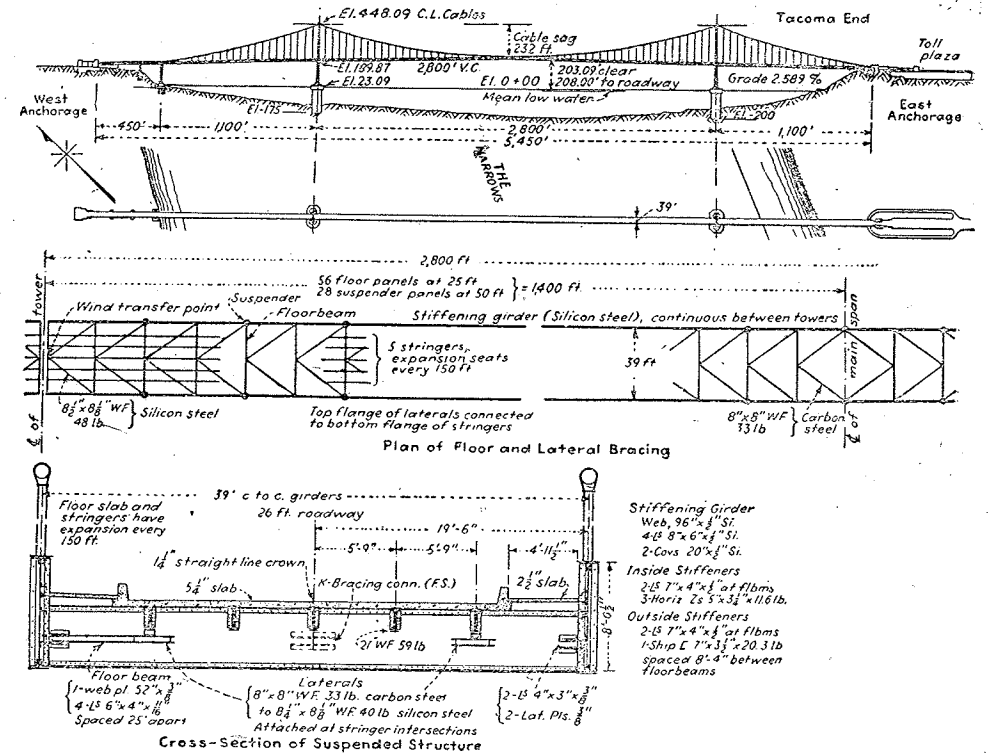 El.448.09 C.L.Cables
Tacoma End
Cable sag
232 ft.
Toll
plaza
El.189.87
2,800' V.C.
203.09' clear
El.23.09
El. 0+00
208.00' to roadway
Grade 2.589 %
Mean low water
West
Anchorage
El-175
El.-200
East
Anchorage
450'
1,100'
2,800'
1,100'
5,450'
THE
NARROWS
39'
2,800 ft
56 floor panels at 25 ft
28 suspender panels at 50 ft } = 1,400 ft
℄ of tower
Wind transfer point
Suspender
Floorbeam
Stiffening girder (Silicon steel), continuous between towers
5 stringers,
expansion seats
every 150 ft
39 ft
℄ of main span
48 lb
Silicon steel
Top flange of laterals connected
to bottom flange of stringers
8"x8" WF
33 lb
Carbon
steel
Plan of Floor and Lateral Bracing
39' c to c. girders
26 ft. roadway
Floor slab and
stringers have
expansion every
150 ft.
19'-6"
5'-9"
5'-9"
4'-11½"
1¼" straight line crown
K-Bracing conn. (F.S.)
5¼" slab
2½" slab
21" WF 59 lb
8'-0½"
Stiffening Girder
Web, 96"x½" Si.
4-Ls 8"x6"x½" Si.
2-Covs 20"x½" Si.
Inside Stiffeners
at flbms
3-Horiz Zs
x11.6 lb.
Outside Stiffeners
at flbms
1-Ship [
x20.3 lb
spaced 8'-4" between
floorbeams
Floor beam
1-web pl. 52"x⅜"
4-Ls 6"x4"x
Spaced 25' apart
Laterals
8"x8" WF. 33 lb. carbon steel
to 8¼"x8⅛" WF. 40 lb silicon steel
Attached at stringer intersections
2-Ls 4"x3"x⅜"
2-Lat. Pls. ⅜"
Cross-Section of Suspended Structure